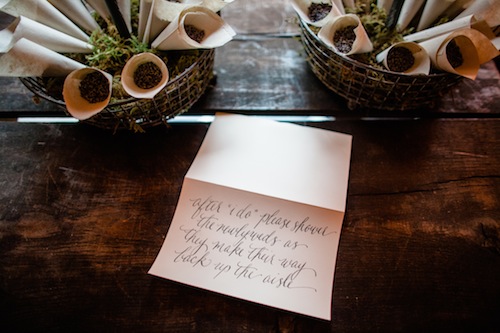 after "i do" please shower
the newlyweds as
they make their way
back up the aisle